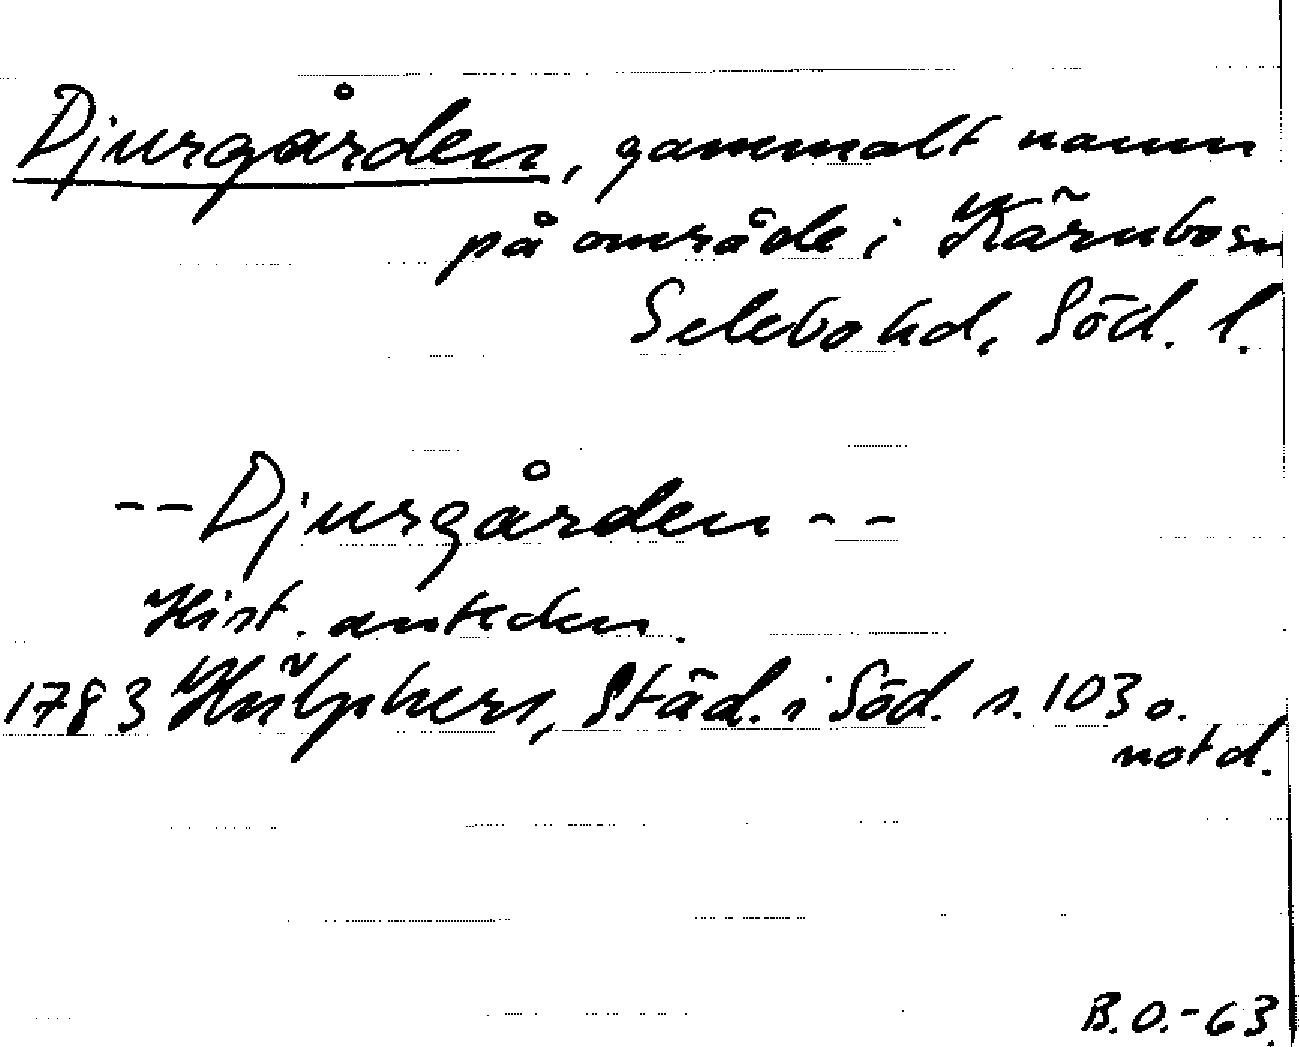 Djurgården, gammalt namn
på område i Kärnbo sn
Selebo hd, Söd. l.
-- Djurgården --
Hist. anteckn.
1783 Hülphers, Städ. i Söd. s. 103 o.
not d.
B.O.-63.